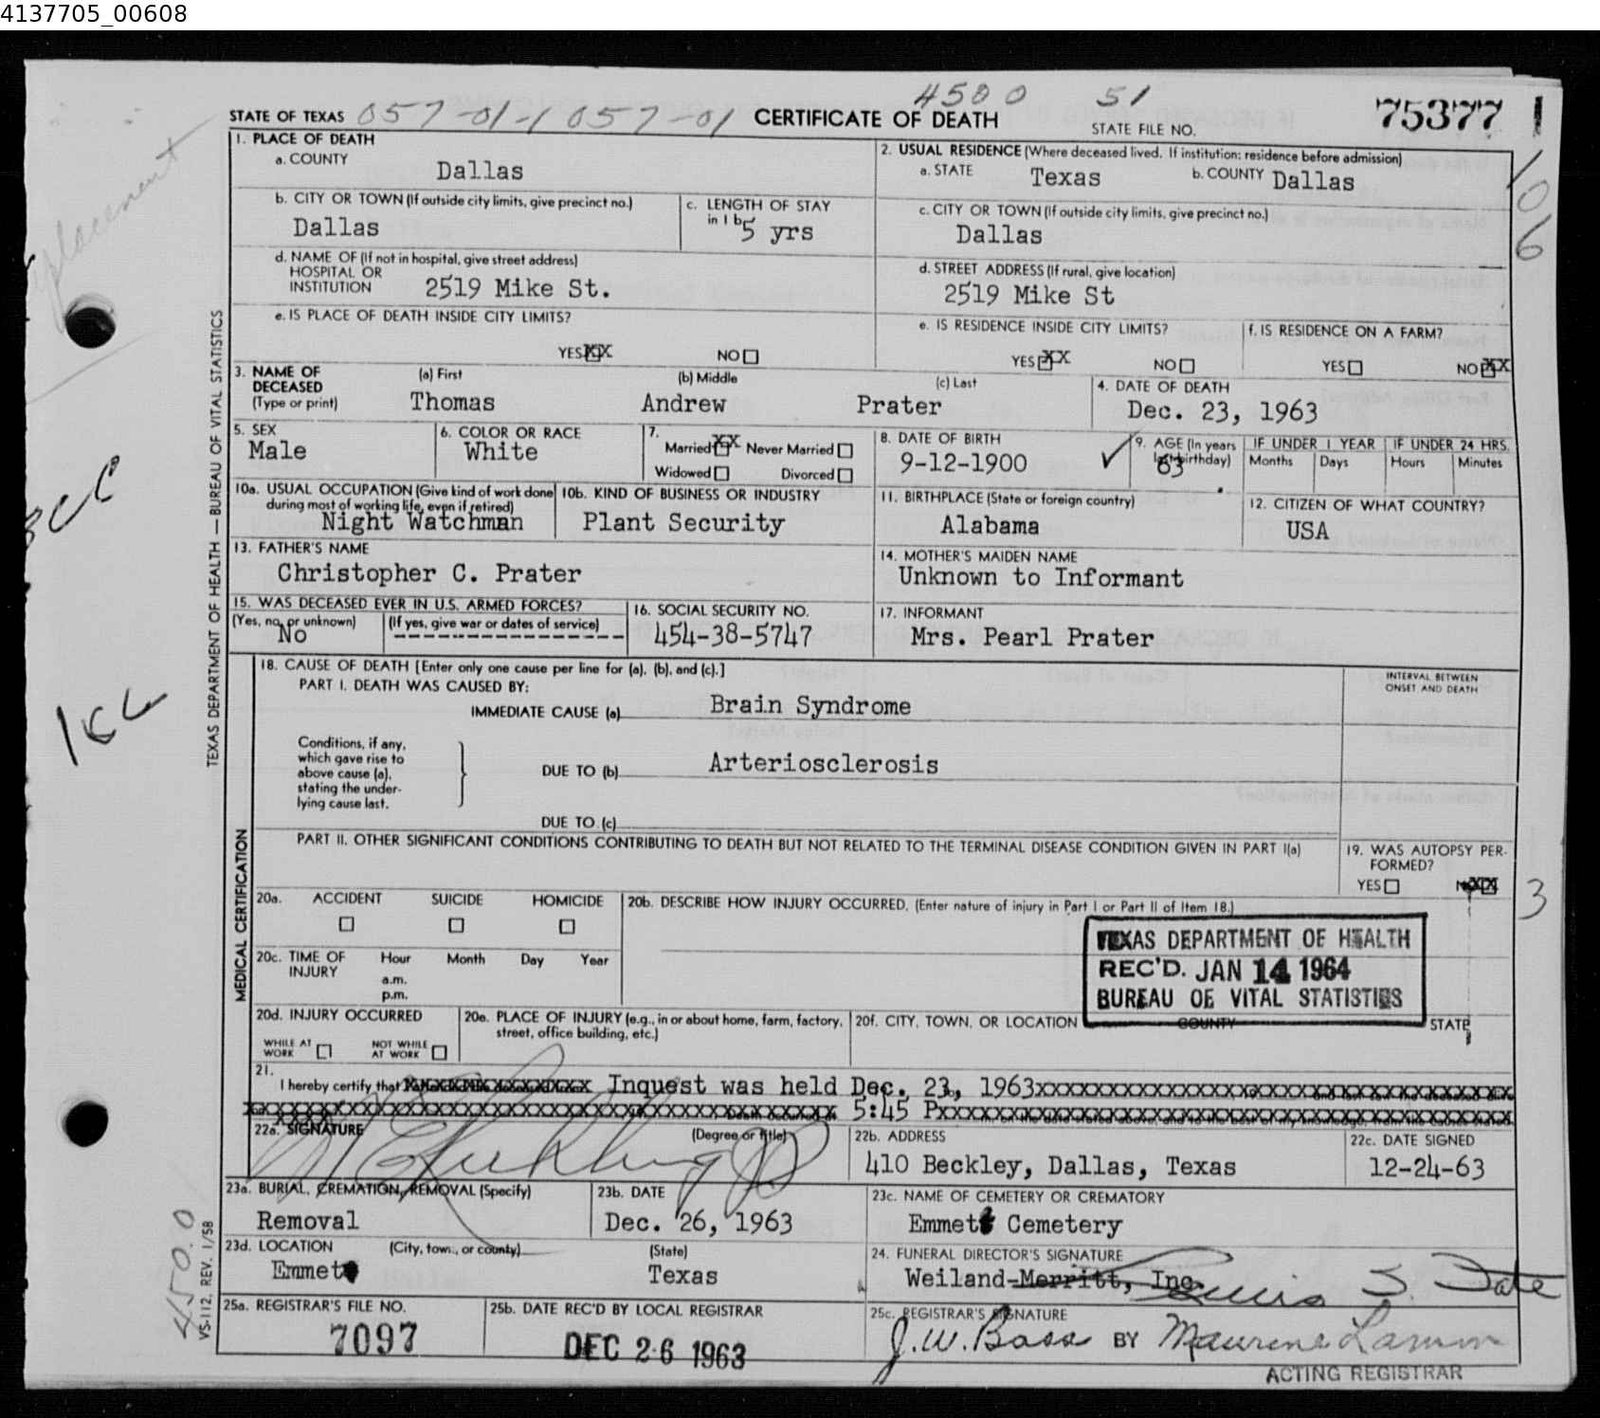 4137705_00608
4500 51
STATE OF TEXAS 057-01-1 057-01 CERTIFICATE OF DEATH STATE FILE NO. 75377 1
106
placement
1. PLACE OF DEATH
a. COUNTY
Dallas
2. USUAL RESIDENCE (Where deceased lived. If institution: residence before admission)
a. STATE Texas b. COUNTY Dallas
b. CITY OR TOWN (If outside city limits, give precinct no.)
Dallas
c. LENGTH OF STAY
in 1 b 5 yrs
c. CITY OR TOWN (If outside city limits, give precinct no.)
Dallas
d. NAME OF (If not in hospital, give street address)
HOSPITAL OR
INSTITUTION 2519 Mike St.
d. STREET ADDRESS (If rural, give location)
2519 Mike St
e. IS PLACE OF DEATH INSIDE CITY LIMITS?
YES XX NO
e. IS RESIDENCE INSIDE CITY LIMITS?
YES XX NO
f. IS RESIDENCE ON A FARM?
YES NO XX
3. NAME OF
DECEASED
(Type or print)
(a) First (b) Middle (c) Last
Thomas Andrew Prater
4. DATE OF DEATH
Dec. 23, 1963
5. SEX
Male
6. COLOR OR RACE
White
7.
Married XX Never Married
Widowed Divorced
8. DATE OF BIRTH
9-12-1900
9. AGE (In years
last birthday)
63
IF UNDER 1 YEAR IF UNDER 24 HRS.
Months Days Hours Minutes
10a. USUAL OCCUPATION (Give kind of work done
during most of working life, even if retired)
Night Watchman
10b. KIND OF BUSINESS OR INDUSTRY
Plant Security
11. BIRTHPLACE (State or foreign country)
Alabama
12. CITIZEN OF WHAT COUNTRY?
USA
13. FATHER'S NAME
Christopher C. Prater
14. MOTHER'S MAIDEN NAME
Unknown to Informant
15. WAS DECEASED EVER IN U.S. ARMED FORCES?
(Yes, no, or unknown) (If yes, give war or dates of service)
No
16. SOCIAL SECURITY NO.
454-38-5747
17. INFORMANT
Mrs. Pearl Prater
18. CAUSE OF DEATH [Enter only one cause per line for (a), (b), and (c).]
PART I. DEATH WAS CAUSED BY:
IMMEDIATE CAUSE (a) Brain Syndrome
INTERVAL BETWEEN
ONSET AND DEATH
Conditions, if any,
which gave rise to
above cause (a),
stating the under-
lying cause last.
DUE TO (b) Arteriosclerosis
DUE TO (c)
PART II. OTHER SIGNIFICANT CONDITIONS CONTRIBUTING TO DEATH BUT NOT RELATED TO THE TERMINAL DISEASE CONDITION GIVEN IN PART I(a)
19. WAS AUTOPSY PER-
FORMED?
YES NO XX
3
20a. ACCIDENT SUICIDE HOMICIDE
20b. DESCRIBE HOW INJURY OCCURRED. (Enter nature of injury in Part I or Part II of Item 18.)
TEXAS DEPARTMENT OF HEALTH
REC'D. JAN 14 1964
BUREAU OF VITAL STATISTICS
20c. TIME OF
INJURY
Hour Month Day Year
a.m.
p.m.
20d. INJURY OCCURRED
WHILE AT
WORK
NOT WHILE
AT WORK
20e. PLACE OF INJURY (e.g., in or about home, farm, factory,
street, office building, etc.)
20f. CITY, TOWN, OR LOCATION COUNTY STATE
21.
I hereby certify that Inquest was held Dec. 23, 1963
5:45 P
22a. SIGNATURE (Degree or title)
22b. ADDRESS
410 Beckley, Dallas, Texas
22c. DATE SIGNED
12-24-63
23a. BURIAL, CREMATION, REMOVAL (Specify)
Removal
23b. DATE
Dec. 26, 1963
23c. NAME OF CEMETERY OR CREMATORY
Emmet Cemetery
23d. LOCATION (City, town, or county) (State)
Emmet Texas
24. FUNERAL DIRECTOR'S SIGNATURE
Weiland-Merritt, Inc.
25a. REGISTRAR'S FILE NO.
7097
25b. DATE REC'D BY LOCAL REGISTRAR
DEC 26 1963
25c. REGISTRAR'S SIGNATURE
J.W. Bass BY
ACTING REGISTRAR
TEXAS DEPARTMENT OF HEALTH — BUREAU OF VITAL STATISTICS
MEDICAL CERTIFICATION
VS-112, REV. 1/58
450.0